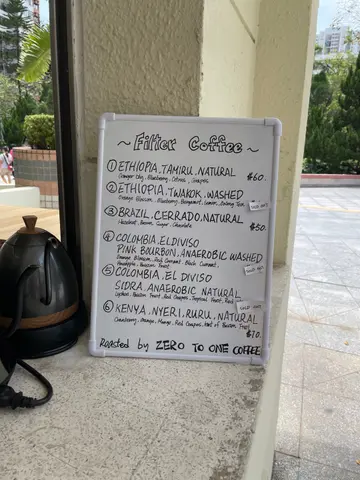 ~ Filter Coffee ~
① ETHIOPIA . TAMIRU . NATURAL
Blueberry, Citrus, Grapes $60
② ETHIOPIA . TWAKOK . WASHED
Orange Blossom, Blueberry, Bergamot, Lemon, Oolong Tea
sold out
③ BRAZIL . CERRADO . NATURAL
Hazelnut, Brown Sugar, Chocolate $50
④ COLOMBIA . EL DIVISO
PINK BOURBON . ANAEROBIC WASHED
Orange Blossom, Red Currant, Black Currant,
Pineapple, Passion Fruit
sold out
⑤ COLOMBIA . EL DIVISO
SIDRA . ANAEROBIC NATURAL
Lychee, Passion Fruit, Red Grapes, Tropical Fruit, Red
sold out
⑥ KENYA . NYERI . RUIRU . NATURAL
Cranberry, Orange, Mango, Red Grapes, Hint of Passion Fruit
$70
Roasted by ZERO TO ONE COFFEE